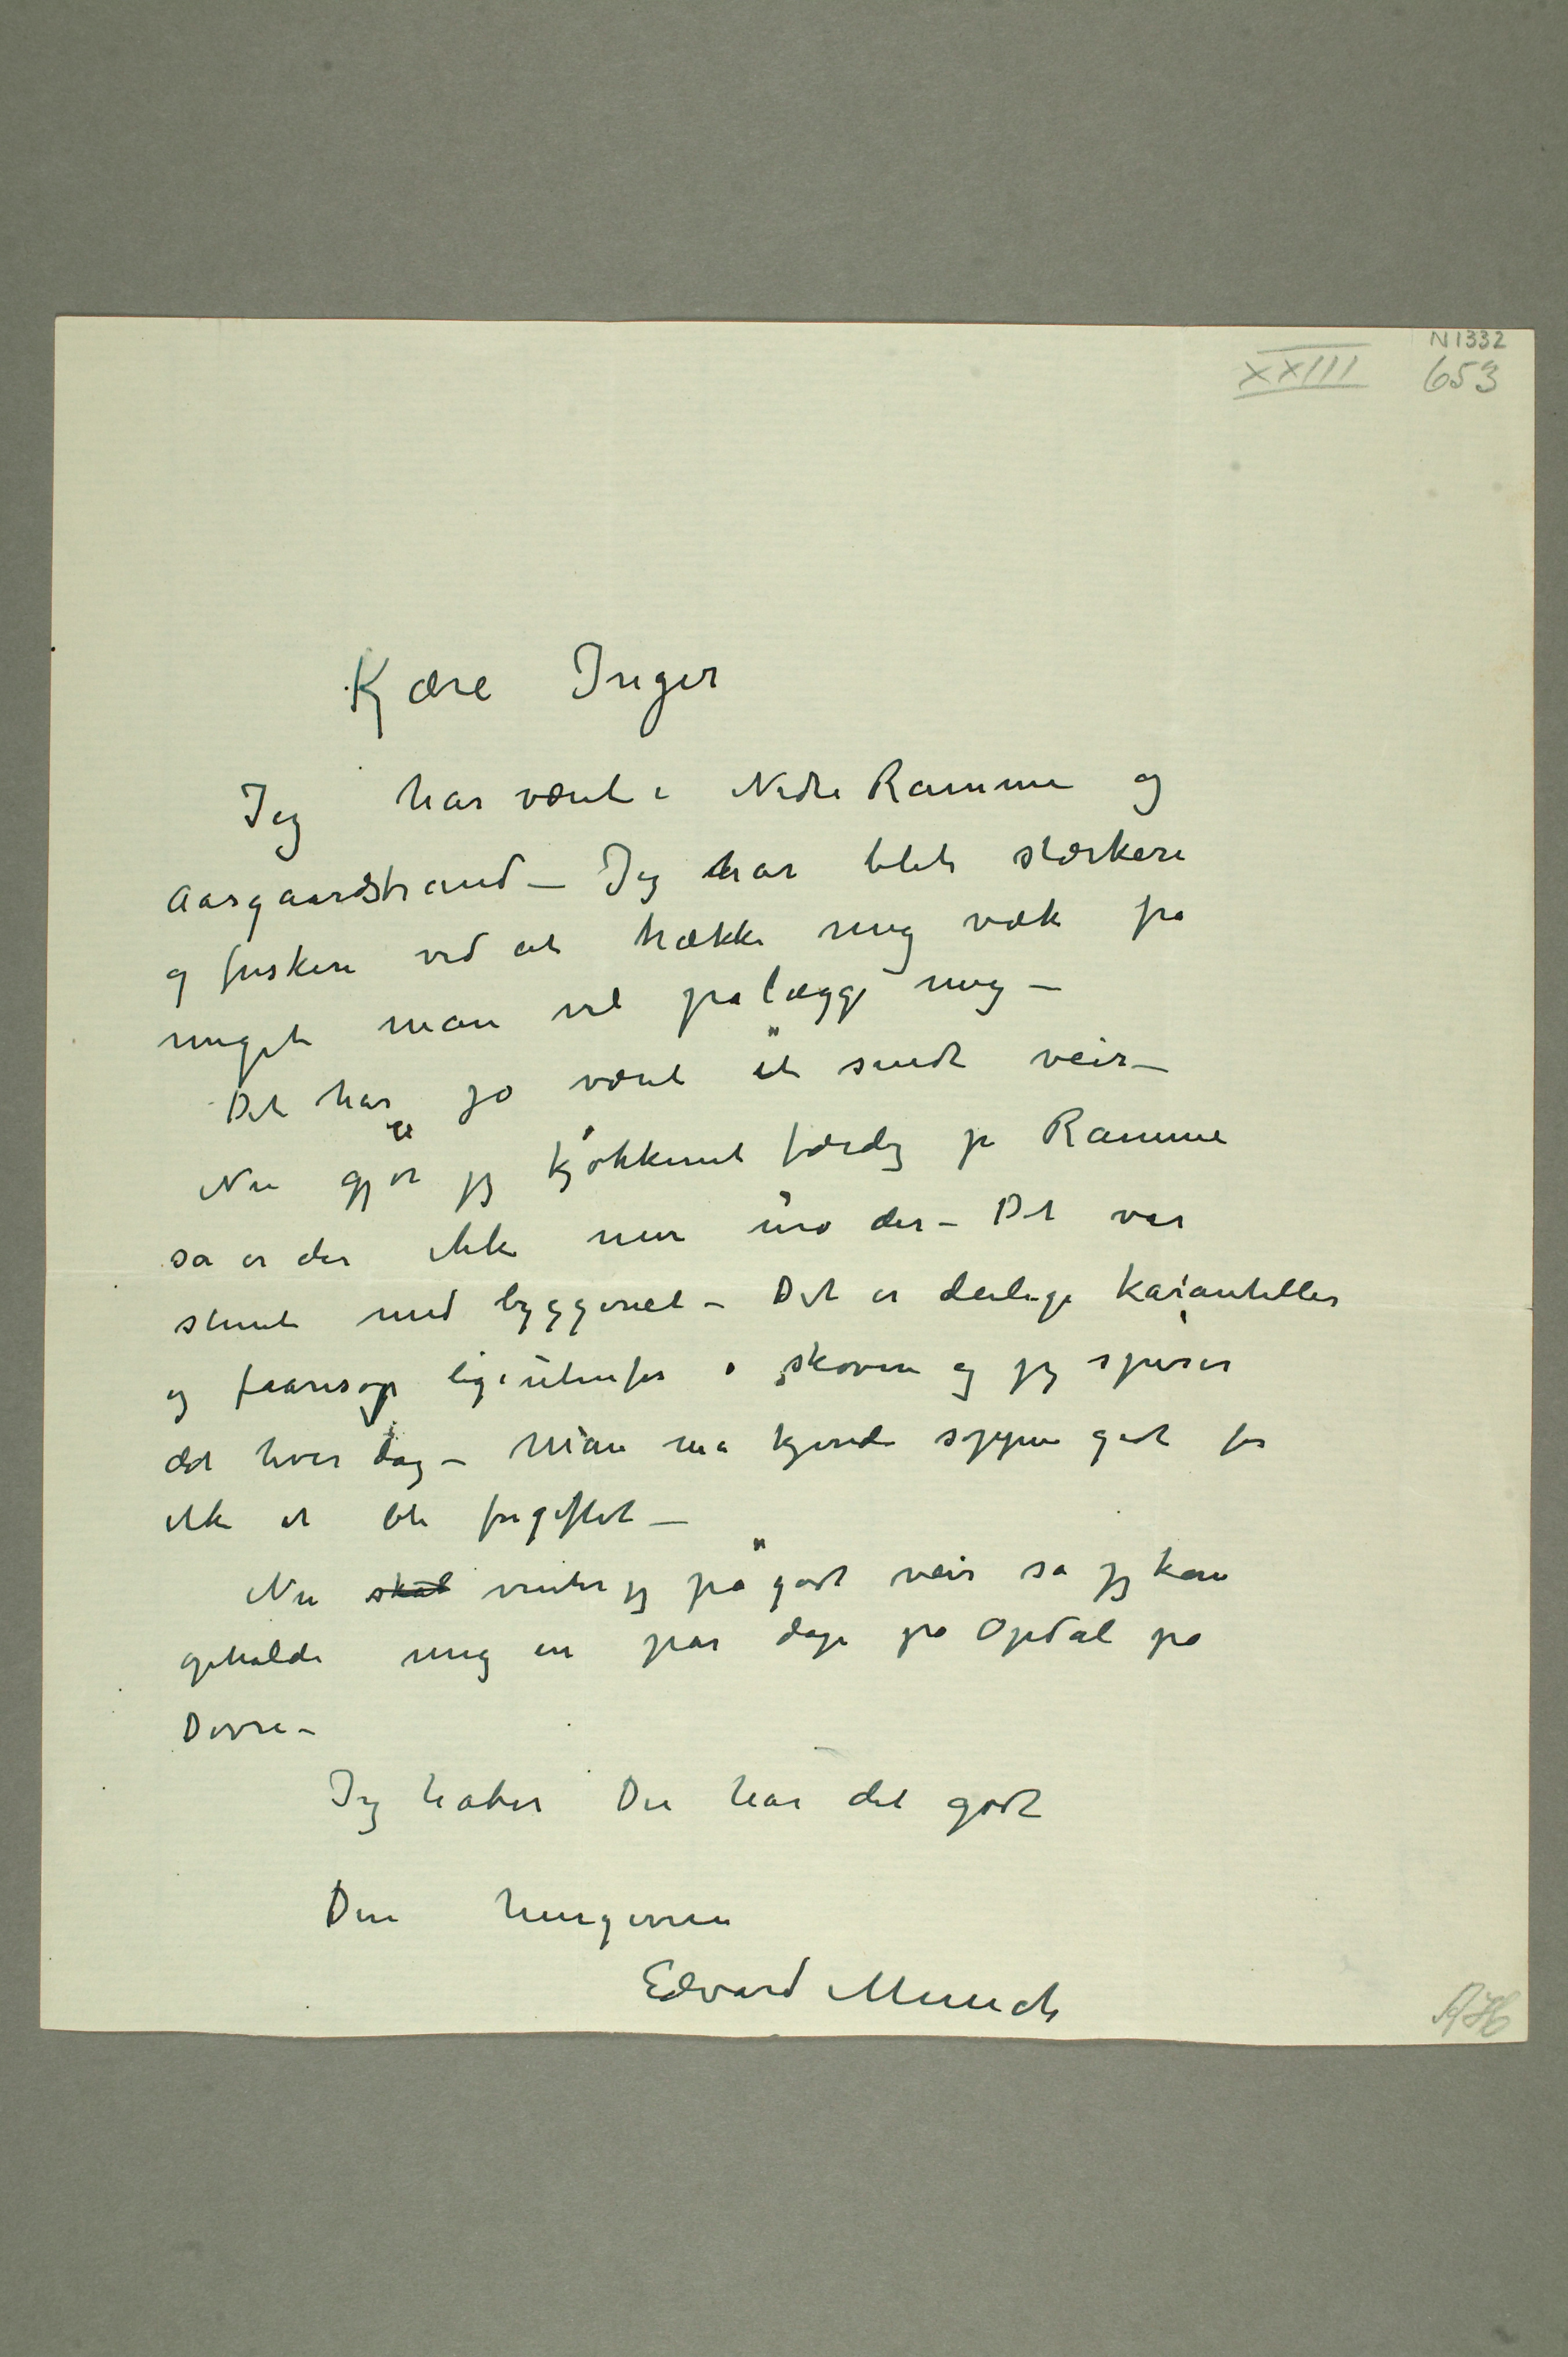 N 1332
XXIII 653
Kjære Inger
Jeg har været i Nedre Ramme og
Aasgaardstrand – Jeg har blit stærkere
og friskere ved at trække mig væk fra
meget man vil pålægge mig –
Det har jo været et sundt veir –
Nu gjør jeg kjøkkenet færdig på Ramme
så er der ikke mer uro der – Det var
slemt med byggeriet – Det er deilige kasantteller
og faaresop lige utenfor i skoven og jeg spiser
det hver dag – Man må kjende soppen godt for
ikke at bli forgiftet –
Nu skal venter jeg på godt veir så jeg kan
opholde mig en par dage på Opdal på
Dovre –
Jeg håber Du har det godt
Din hengivne
Edvard Munch
AH